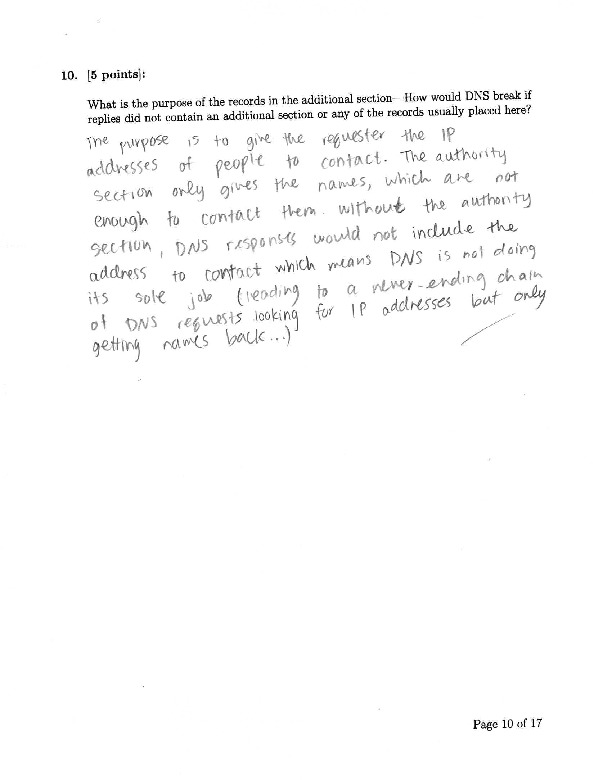 10. [5 points]:
What is the purpose of the records in the additional section— How would DNS break if
replies did not contain an additional section or any of the records usually placed here?
The purpose is to give the requester the IP
addresses of people to contact. The authority
section only gives the names, which are not
enough to contact them. without the authority
section, DNS responses would not include the
address to contact which means DNS is not doing
its sole job (leading to a never-ending chain
of DNS requests looking for IP addresses but only
getting names back...)
Page 10 of 17